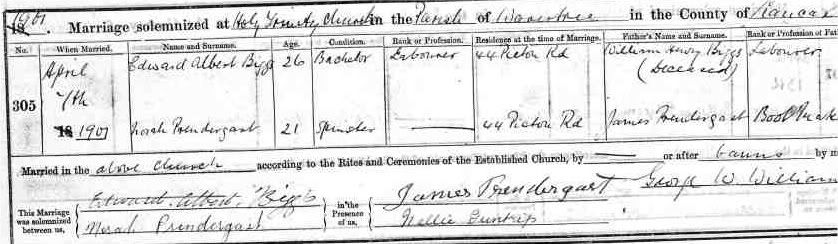 1901 Marriage solemnized at Holy Trinity Church in the Parish of Wavertree in the County of Lancas
No. When Married. Name and Surname. Age. Condition. Rank or Profession. Residence at the time of Marriage. Father's Name and Surname. Rank or Profession of Fat
305 April 7th 18 1901 Edward Albert Biggs 26 Bachelor Labourer 44 Picton Rd William Henry Biggs (Deceased) Labourer
Norah Prendergast 21 Spinster 44 Picton Rd James Prendergast Boot Mak
Married in the above church according to the Rites and Ceremonies of the Established Church, by or after banns by m
This Marriage was solemnized between us, Edward Albert Biggs Norah Prendergast in the Presence of us, James Prendergast Nellie George W. William